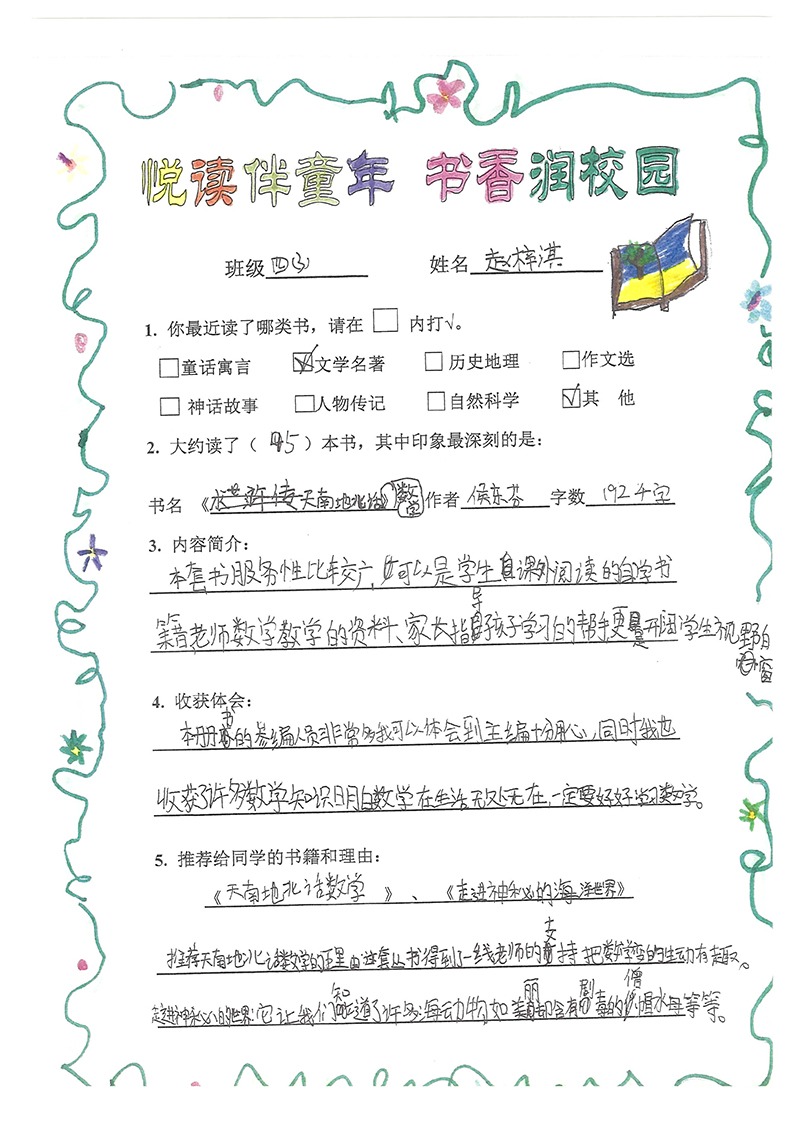 悦读伴童年 书香润校园
班级 四(3) 姓名 赵梓淇
1. 你最近读了哪类书，请在 □ 内打√。
□童话寓言 ☑文学名著 □历史地理 □作文选
□神话故事 □人物传记 □自然科学 ☑其 他
2. 大约读了（ 45 ）本书，其中印象最深刻的是：
书名 《天南地北话数学》 作者 侯东芬 字数 192千字
3. 内容简介：
本套书服务性比较广，可以是学生课外阅读的自学书
籍老师数学教学的资料、家长指导孩子学习的帮手更是开阔学生视野的
窗
4. 收获体会：
本册书的参编人员非常多我可以体会到主编十分用心，同时我也
收获了许多数学知识明白数学在生活无处无在，一定要好好学习数学。
5. 推荐给同学的书籍和理由：
《天南地北话数学 》、《走进神秘的海洋世界》
推荐天南地北话数学的理由这套丛书得到了一线老师的支持把数学变的生动有趣。
走进神秘的世界：它让我们知道了许多海动物如美丽却含有剧毒的僧帽水母等等。